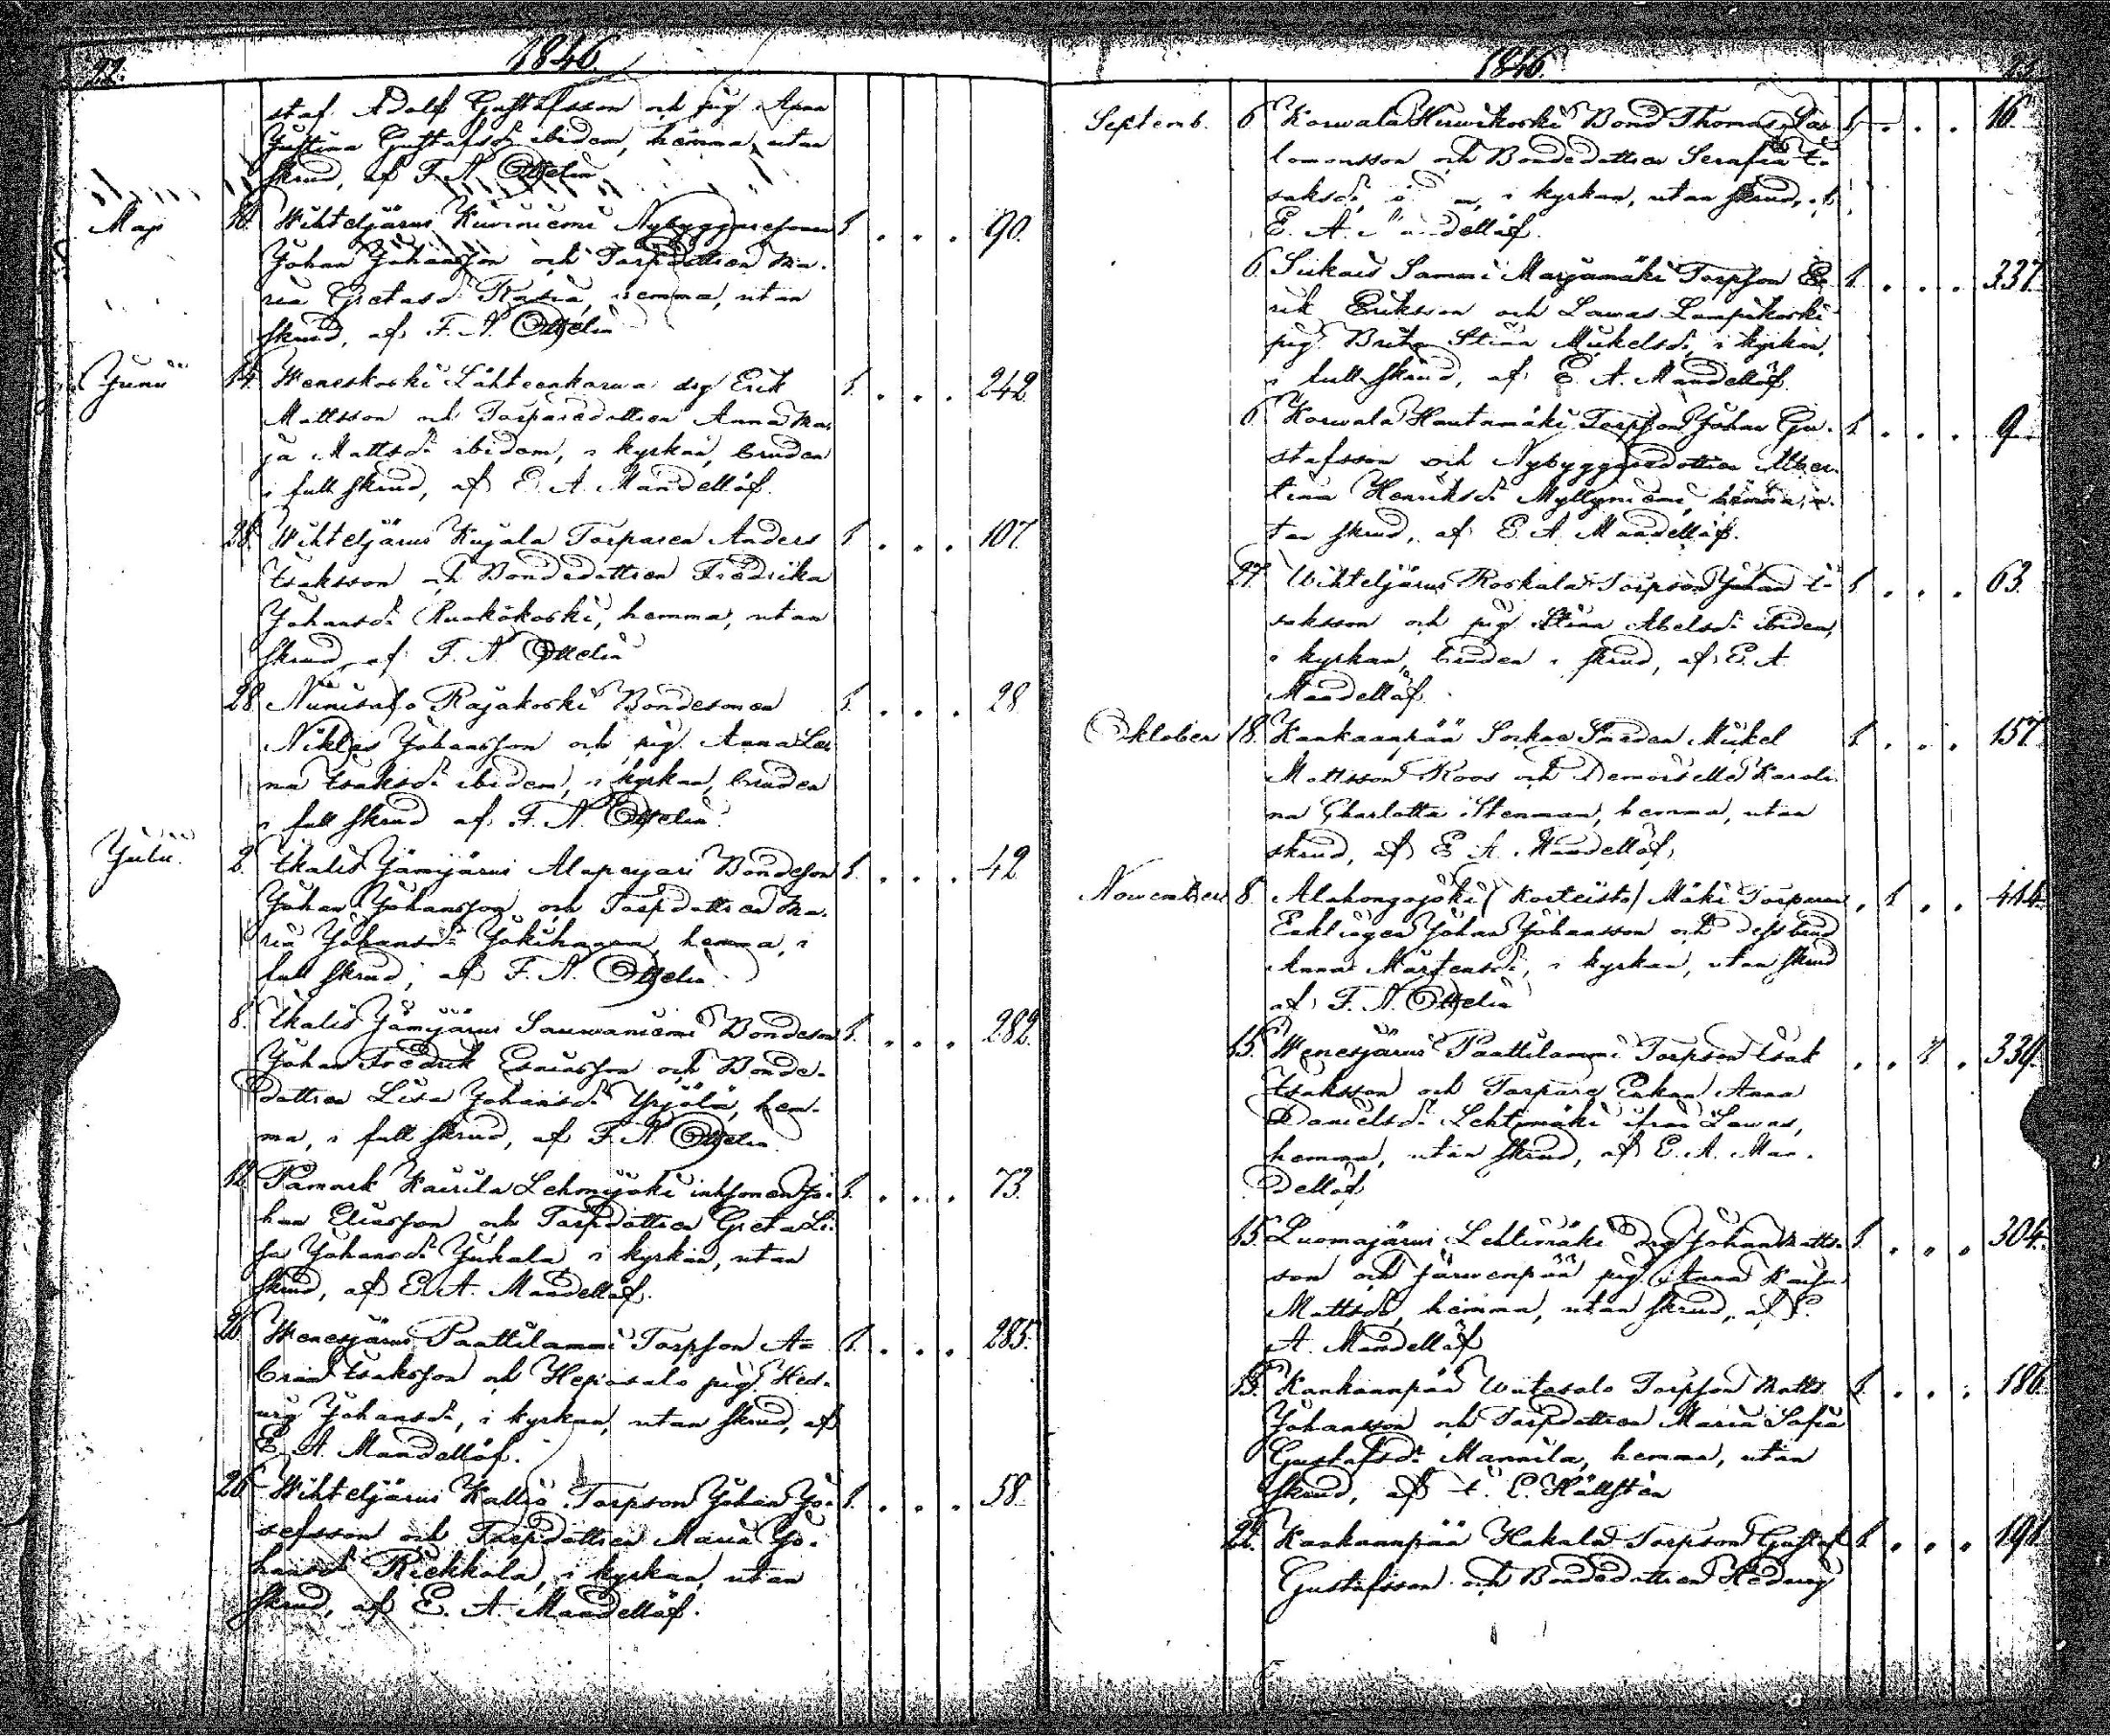 22.
1846.
staf Adolf Gustafsson och pig. Anna
Justina Gustafsd:r ibidem, hemma, utan
skrud, af F. N. Ottelin
Maj 10. Wihteljärwi Kiwiniemi Nybyggaresonen 1. . . . 90.
Johan Johansson och Torpdottren Ma-
ria Gretasd:r Rasia, hemma, utan
skrud, af F. N. Ottelin
Junii 14. Weneskoski Lähteenkorwa drg Erik 1. . . . 242
Mattsson och Torparedottren Anna Ma-
ja Mattsd:r ibidem, i kyrkan, bruden
i full skrud, af E. A. Mandellöf.
28. Wihteljärwi Kujala Torparen Anders 1 . . . 107.
Isaksson och Bondedottren Fredrika
Johansd:r Ruokokoski, hemma, utan
skrud, af F. N. Ottelin
28 Niinisalo Rajakoski Bondesonen 1. . . . 28
Niklas Johansson och pig. Anna Le-
na Isaksd:r ibidem, i kyrkan, bruden
i full skrud af F. N. Ottelin.
Julii 2. Ikalis Jämijärwi Alapeijari Bondeson 1. . . . 42
Johan Johansson och Torpdottren Ma-
ria Johansd:r Jokihaara, hemma, i
full skrud, af F. N. Ottelin.
8. Ikalis Jämijärwi Sauwaniemi Bondeson 1. . . . 282.
Johan Fredrik Esaiasson och Bonde-
dottren Lisa Johansd:r Yrjölä, hem-
ma, i full skrud, af F. N. Ottelin
12. Påmark Kairila Lehmijoki inhsonen Jo- 1. . . . 73.
han Eliasson och Torpdottren Greta Li-
sa Johansd:r Juhala i kyrkan, utan
skrud, af E. A. Mandellöf.
26. Wenesjärwi Paattilammi Torpson A= 1. . . . 285.
bram Isaksson och Heposalo pig. Hed-
wig Johansd:r, i kyrkan, utan skrud, af
E. A. Mandellöf.
26 Wihteljärwi Kallio Torpson Johan Jo- 1. . . . 58.
sefsson och Torpdottren Maria Jo-
hansd:r Riekkola, i kyrkan, utan
skrud, af E. A. Mandellöf.
1846.
Septemb. 6 Korwala Hirwikoski Bond. Thomas Sa- 1. . . . 16.
lomonsson och Bondedottren Serafia I-
saksd:r, i kyrkan, utan skrud, af
E. A. Mandellöf.
6. Siikais Sammi Marjamäki Torpson E- 1. . . . 337.
rik Eriksson och Lawas Lampikoski
pig. Brita Stina Mickelsd:r, i kyrkan,
i full skrud, af E. A. Mandellöf.
6 Korwala Hautamäki Torpson Johan Gu- 1. . . . 9.
stafsson och Nybyggaredottren Alber-
tina Henriksd:r Myllyniemi, hemma, u-
tan skrud, af E. A. Mandellöf.
27. Wihteljärwi Roskala Torpson Johan I- 1. . . . 63.
saksson och pig. Stina Abelsd:r ibidem,
i kyrkan, bruden i skrud, af E. A.
Mandellöf.
Oktober 18. Kankaanpää Sorkoo Smeden Mickel 1. . . . 157.
Mattsson Roos och Demoiselle Karoli-
na Charlotta Stenman, hemma, utan
skrud, af E. A. Mandellöf,
November 8. Alahongojoki (Korteisto) Mäki Torparen . 1 . . 444.
Enklingen Johan Johansson och dess brud
Anna Mårtensd:r, i kyrkan, utan skrud
af F. N. Ottelin
15. Wenesjärwi Paattilammi Torpson Isak . . 1 . 339.
Isaksson och Torpare Enkan Anna
Danielsd:r Lehtimäki ifrån Lawas,
hemma, utan skrud, af E. A. Man-
dellöf,
15. Luomajärwi Lehtimäki drg Johan Matts- 1. . . . 304.
son och Järwenpää pig. Anna Kaisa
Mattsd:r, hemma, utan skrud, af E.
A. Mandellöf
15. Kankaanpää Wiitasalo Torpson Matts 1. . . . 186.
Johansson och Torpdottren Maria Sofia
Gustafsd:r Mannila, hemma, utan
skrud, af I. E. Hällsten
22. Kankaanpää Hakala Torpson Gustaf 1. . . . 191.
Gustafsson och Bondedottren Hedwig